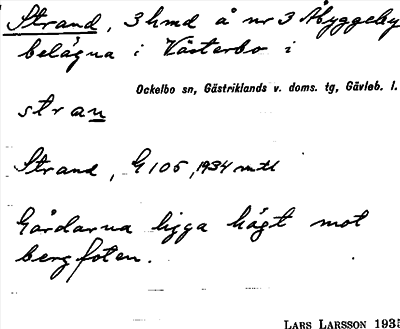 Strand, 3 hmd å nr 3 Åbyggeby
belägna i Västerbo i
Ockelbo sn, Gästriklands v. doms. tg, Gävleb. l.
stran
Strand, G 105, 1934 mtl
Gårdarna ligga högt mot
bergfoten.
LARS LARSSON 1935